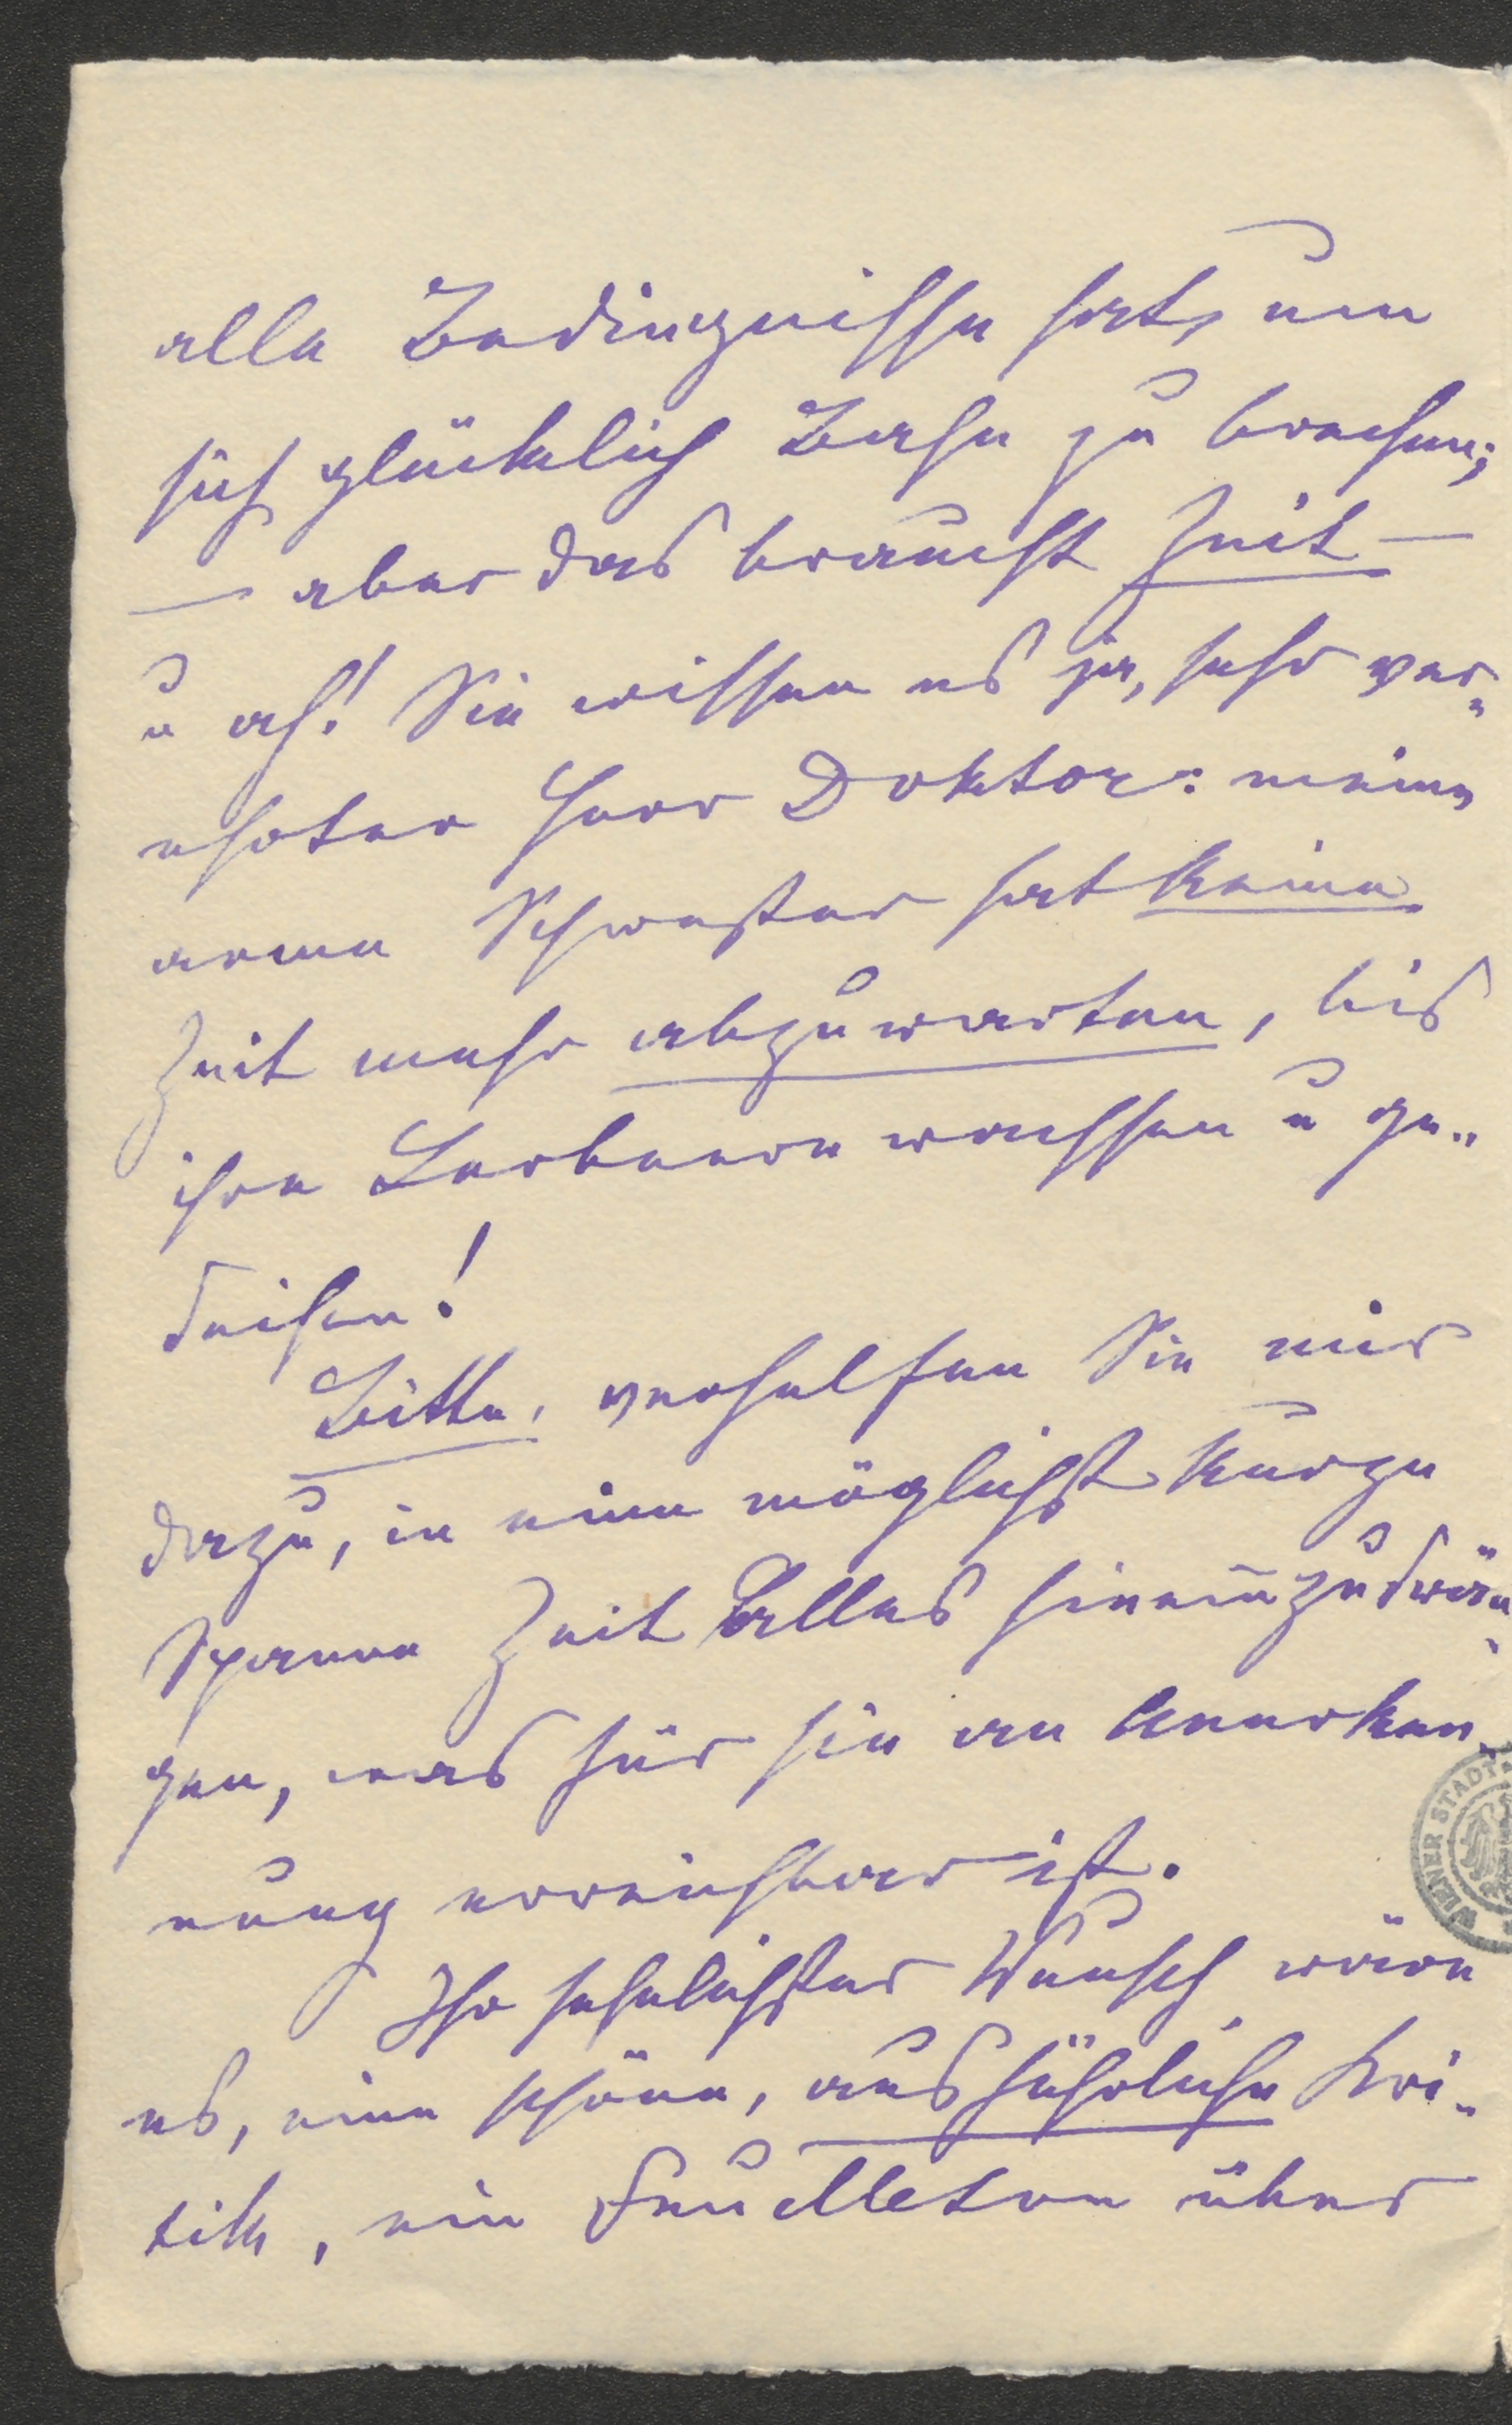 alle Bedingnisse hat, um
sich glücklich Bahn zu brechen;
— aber das braucht Zeit —
u ach! Sie wissen es ja, sehr ver-
ehrter Herr Doktor: meine
arme Schwester hat keine
Zeit mehr abzuwarten, bis
ihre Lorbeere wachsen u ge-
deihen!
Bitte, verhelfen Sie mir
dazu, in eine möglichst kurze
Spanne Zeit Alles hineinzudrän-
gen, was für sie an Anerken-
nung erreichbar ist.
Ihr sehnlichster Wunsch wäre
es, eine schöne, ausführliche Kri-
tik, ein Feuilleton über
WIENER STADT